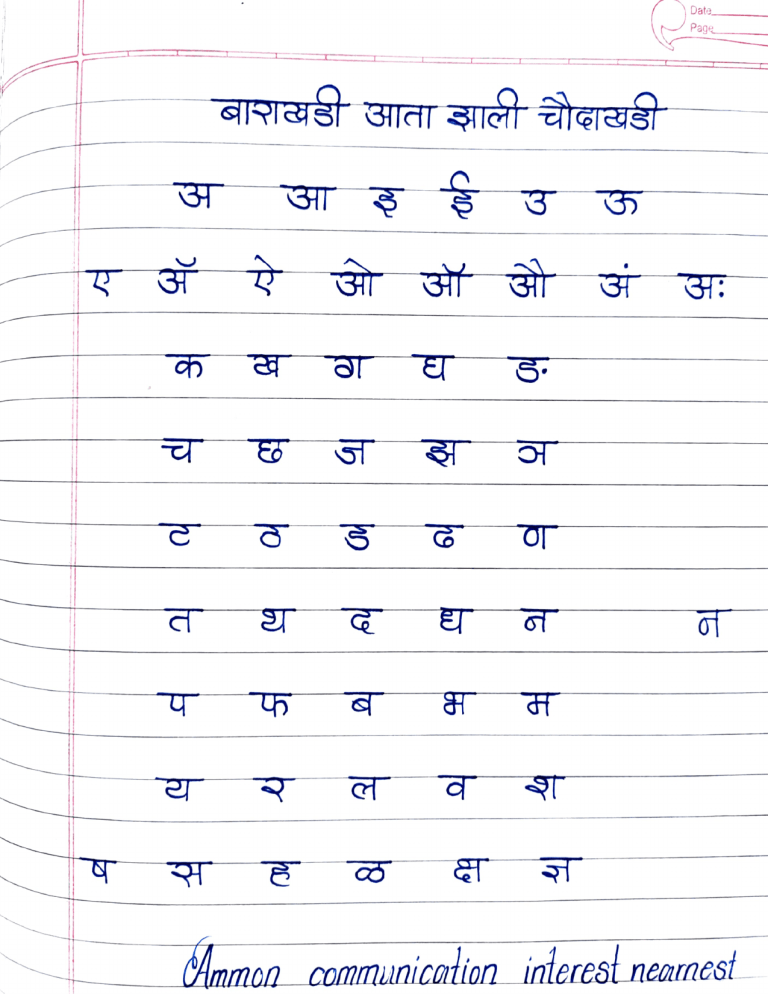 Date
Page
बाराखडी आता झाली चौदाखडी
अ आ इ ई उ ऊ
ए ॲ ऐ ओ ऑ औ अं अः
क ख ग घ ङ
च छ ज झ ञ
ट ठ ड ढ ण
त थ द ध न न
प फ ब भ म
य र ल व श
ष स ह ळ क्ष ज्ञ
Ammon communication interest nearnest